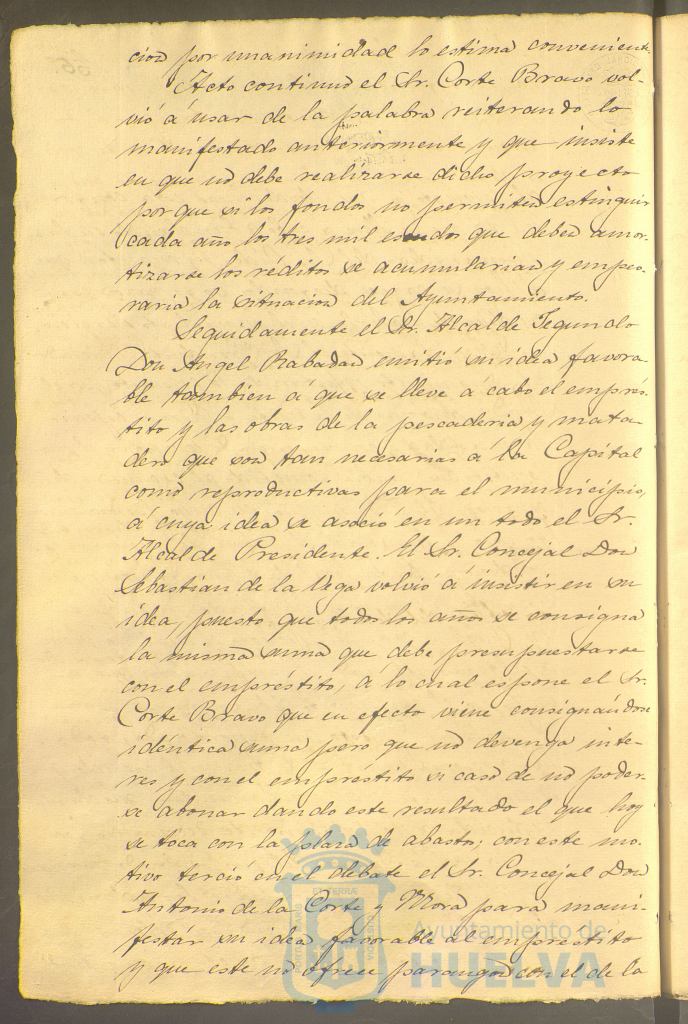 cion por unanimidad lo estima conveniente.
Acto continuo el Sr. Corte Bravo vol-
vió á usar de la palabra reiterando lo
manifestado anteriormente y que insiste
en que no debe realizarse dicho proyecto
porque si los fondos no permiten estinguir
cada año los tres mil escudos que deben amor-
tizarse los réditos se acumularian y empeo-
raria la situacion del Ayuntamiento.
Seguidamente el Sr. Alcalde Segundo
Don Angel Rabadan emitió su idea favora-
ble tambien á que se lleve á cabo el emprés-
tito y las obras de la pescaderia y mata-
dero que son tan necesarias á la Capital
como reproductivas para el municipio,
á cuya idea se asoció en un todo el Sr.
Alcalde Presidente. El Sr. Concejal Don
Sebastian de la Vega volvió á insistir en su
idea, puesto que todos los años se consigna
la misma suma que debe presupuestarse
con el empréstito, á lo cual espone el Sr.
Corte Bravo que en efecto viene consignándose
idéntica suma pero que no devenga inte-
res y con el empréstito si caso de no poder-
se abonar dando este resultado el que hoy
se toca con la plaza de abasto; con este mo-
tivo terció en el debate el Sr. Concejal Don
Antonio de la Corte y Mora para mani-
festár su idea favorable al emprestito
y que este no ofrece parangon con el de la
Ayuntamiento de
HUELVA